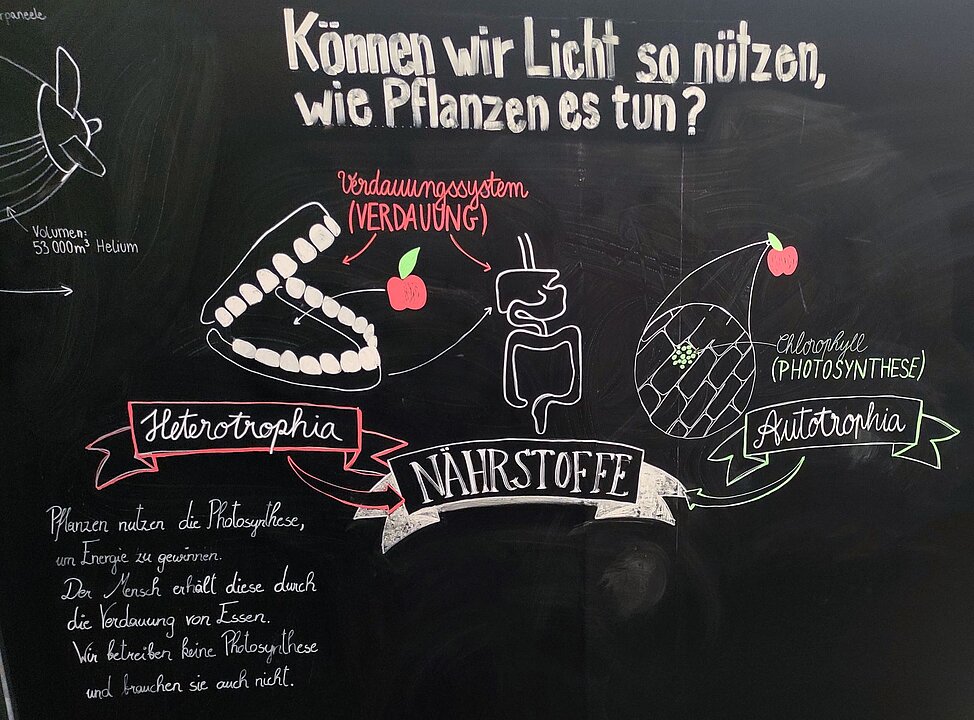 Können wir Licht so nützen,
wie Pflanzen es tun?
Volumen:
53000m³ Helium
Verdauungssystem
(VERDAUUNG)
Chlorophyll
(PHOTOSYNTHESE)
Heterotrophia
Autotrophia
NÄHRSTOFFE
Pflanzen nutzen die Photosynthese,
um Energie zu gewinnen.
Der Mensch erhält diese durch
die Verdauung von Essen.
Wir betreiben keine Photosynthese
und brauchen sie auch nicht.